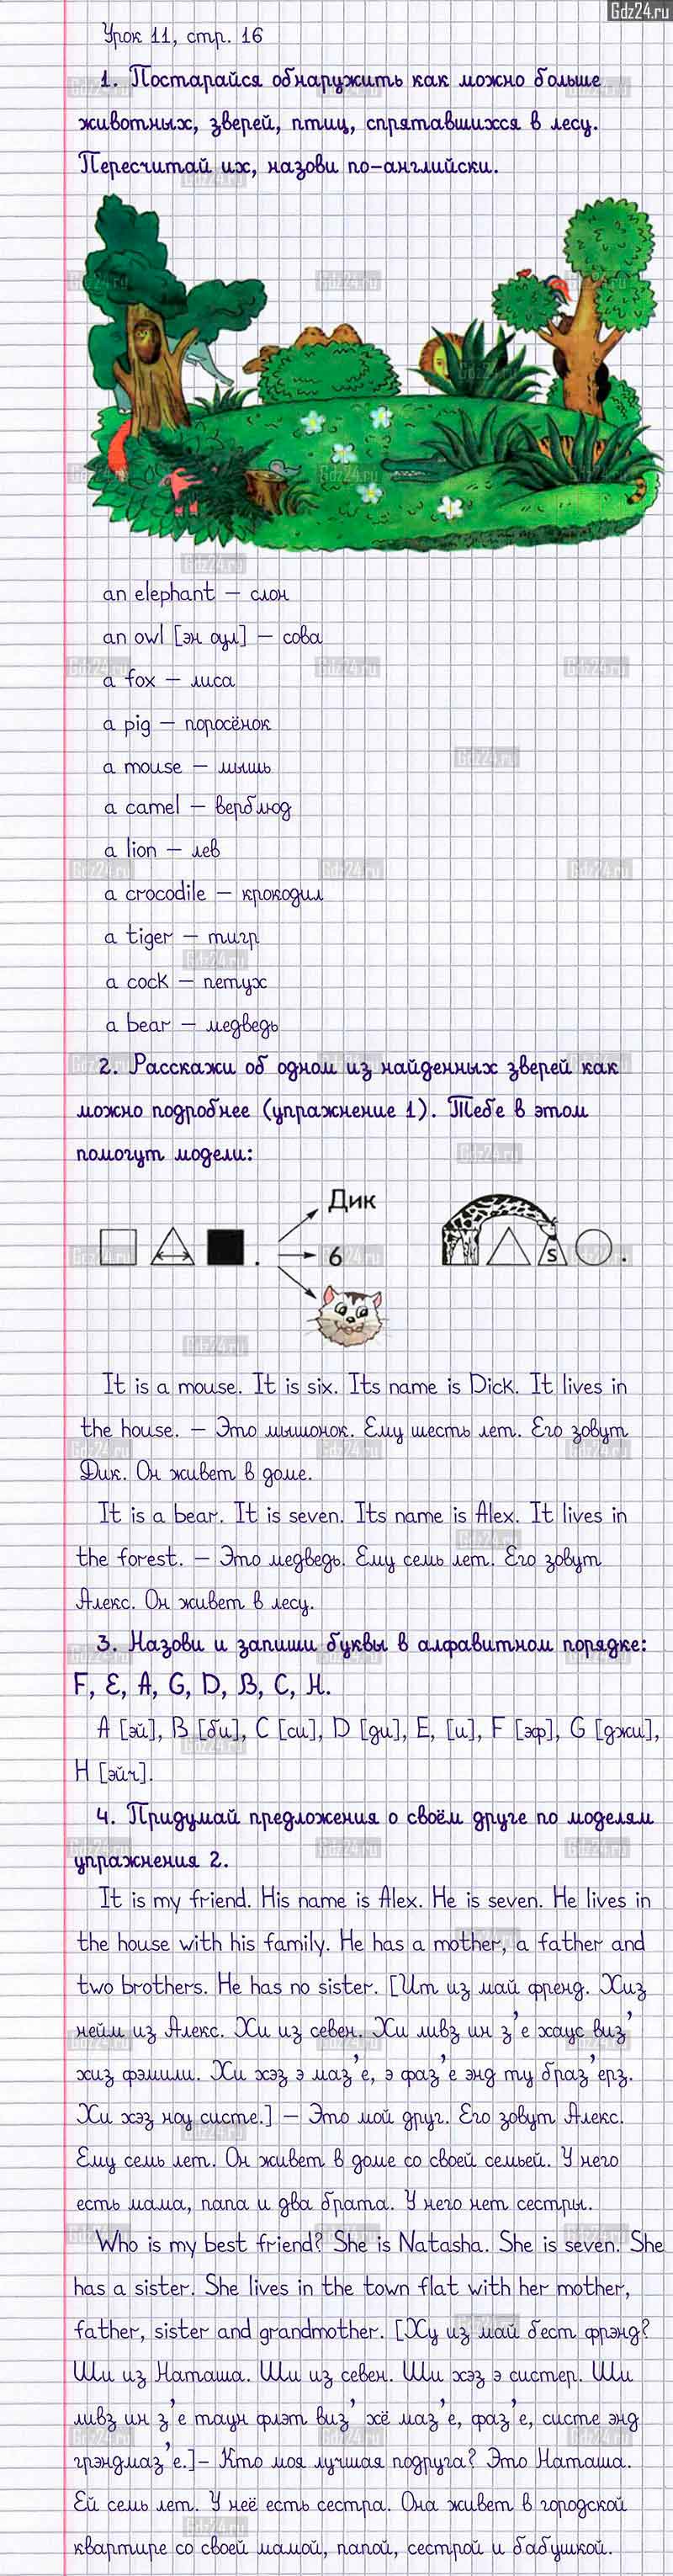 Gdz24.ru
Урок 11, стр. 16
1. Постарайся обнаружить как можно больше
животных, зверей, птиц, спрятавшихся в лесу.
Пересчитай их, назови по-английски.
an elephant – слон
an owl [эн аул] – сова
a fox – лиса
a pig – поросёнок
a mouse – мышь
a camel – верблюд
a lion – лев
a crocodile – крокодил
a tiger – тигр
a cock – петух
a bear – медведь
2. Расскажи об одном из найденных зверей как
можно подробнее (упражнение 1). Тебе в этом
помогут модели:
Дик
6
s
It is a mouse. It is six. Its name is Dick. It lives in
the house. – Это мышонок. Ему шесть лет. Его зовут
Дик. Он живет в доме.
It is a bear. It is seven. Its name is Alex. It lives in
the forest. – Это медведь. Ему семь лет. Его зовут
Алекс. Он живет в лесу.
3. Назови и запиши буквы в алфавитном порядке:
F, E, A, G, D, B, C, H.
A [эй], B [би], C [си], D [ди], E, [и], F [эф], G [джи],
H [эйч].
4. Придумай предложения о своём друге по моделям
упражнения 2.
It is my friend. His name is Alex. He is seven. He lives in
the house with his family. He has a mother, a father and
two brothers. He has no sister. [Ит из май френд. Хиз
нейм из Алекс. Хи из севен. Хи ливз ин з'е хаус виз'
хиз фэмили. Хи хэз э маз'е, э фаз'е энд ту браз'ерз.
Хи хэз ноу систе.] – Это мой друг. Его зовут Алекс.
Ему семь лет. Он живет в доме со своей семьей. У него
есть мама, папа и два брата. У него нет сестры.
Who is my best friend? She is Natasha. She is seven. She
has a sister. She lives in the town flat with her mother,
father, sister and grandmother. [Ху из май бест фрэнд?
Ши из Наташа. Ши из севен. Ши хэз э систер. Ши
ливз ин з'е таун флэт виз' хё маз'е, фаз'е, систе энд
грэндмаз'е.]– Кто моя лучшая подруга? Это Наташа.
Ей семь лет. У неё есть сестра. Она живет в городской
квартире со своей мамой, папой, сестрой и бабушкой.